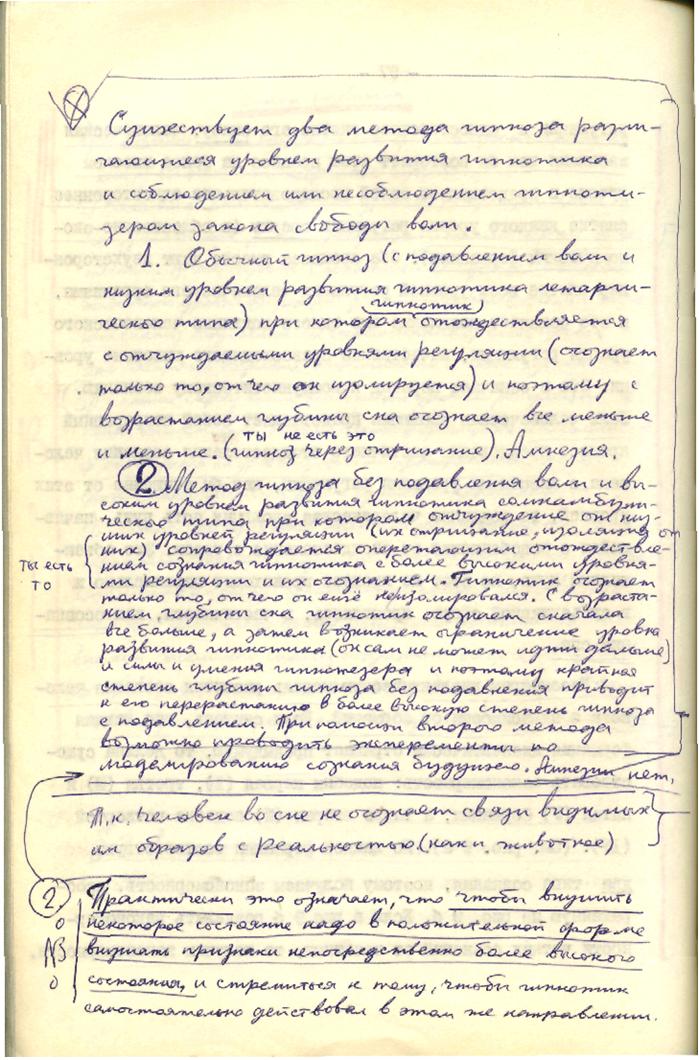 Существует два метода гипноза разли-
чающиеся уровнем развития гипнотика
и соблюдением или несоблюдением гипноти-
зером закона свободы воли.
1. Обычный гипноз (с подавлением воли и
низким уровнем развития гипнотика летарги-
гипнотик
ческого типа) при котором отождествляется
с отчуждаемыми уровнями регуляции (осознает
только то, от чего он изолируется) и поэтому с
возрастанием глубины сна осознает все меньше
ты не есть это
и меньше. (гипноз через отрицание). Амнезия.
2 Метод гипноза без подавления воли и вы-
соким уровнем развития гипнотика сомнамбули-
ческого типа при котором отчуждение от низ-
ших уровней регуляции (их отрицание, изоляция от
них) сопровождается опережающим отождествле-
ты есть
то
нием сознания гипнотика с более высокими уровня-
ми регуляции и их осознанием. Гипнотик осознает
только то, от чего он ещё неизолировался. С возраста-
нием, глубины сна гипнотик осознает сначала
все больше, а затем возникает ограничение уровня
развития гипнотика (он сам не может идти дальше)
и силы и умения гипнотезера и поэтому крайняя
степень глубины гипноза без подавления приводит
к его перерастанию в более высокую степень гипноза
с подавлением. При помощи второго метода
возможно проводить эксперементы по
моделированию сознания будущего. Амнезии нет,
т.к. человек во сне не осознает связи видимых
им образов с реальностью (как и животное)
2 Практически это означает, что чтобы внушить
некоторое состояние надо в положительной форме
внушать признаки непосредственно более высокого
состояния, и стремиться к тому, чтобы гипнотик
самостоятельно действовал в этом же направлении.
NB